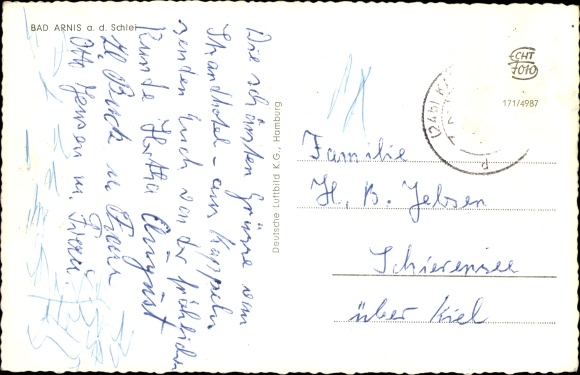 BAD ARNIS a. d. Schlei
Die schönsten Grüsse vom
Strandhotel - aus Kappeln
senden Euch von der fröhlichen
Runde Hertha August
H. Beuck u Frau
Otto Jensen u. Frau.
Deutsche Luftbild K G., Hamburg
CHT
7010
171/4987
Familie
H. B. Jebsen
Schierensee
über Kiel